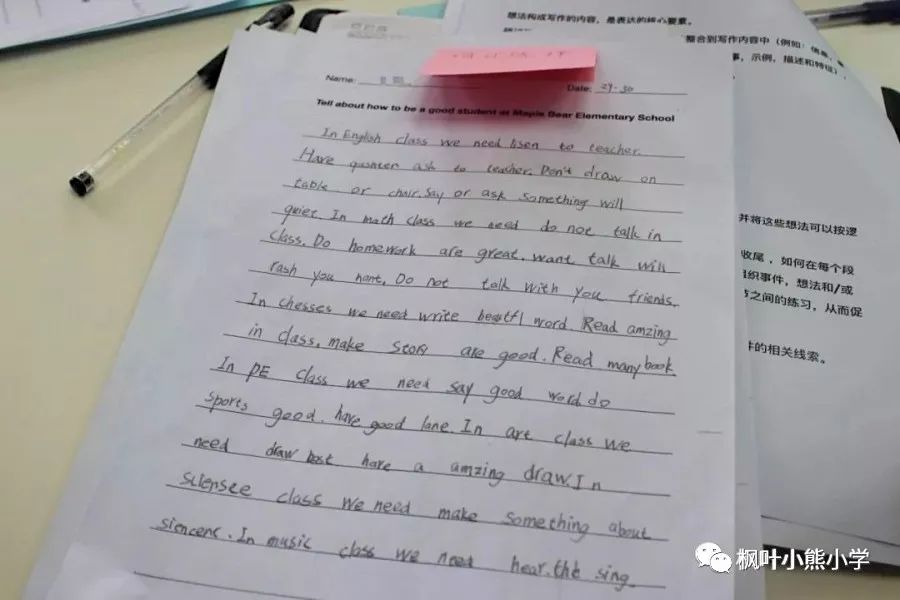 想法构成写作的内容，是表达的核心要素。
整合到写作内容中（例如：信息，
事，示例，描述和特征），
Name:
Date: 29-30
Tell about how to be a good student at Maple Bear Elementary School
In English class we need lisen to teacher.
Have qusnter ash to teacher. Don't draw on
table or chair. Say or ask something will
quiet. In math class we need do not talk in
class. Do homework are great. want talk will
rash you hant. Do not talk with you friends.
In chesses we need write beatfl word. Read amzing
in class. make story are good. Read many book
In PE class we need say good word. do
sports good. have good lane. In art class we
need draw best have a amzing draw. In
sciensee class we need make something about
siencenc. In music class we need hear. the sing.
并将这些想法可以按逻
收尾，如何在每个段
组织事件，想法和/或
节之间的练习，从而促
件的相关线索。
枫叶小熊小学